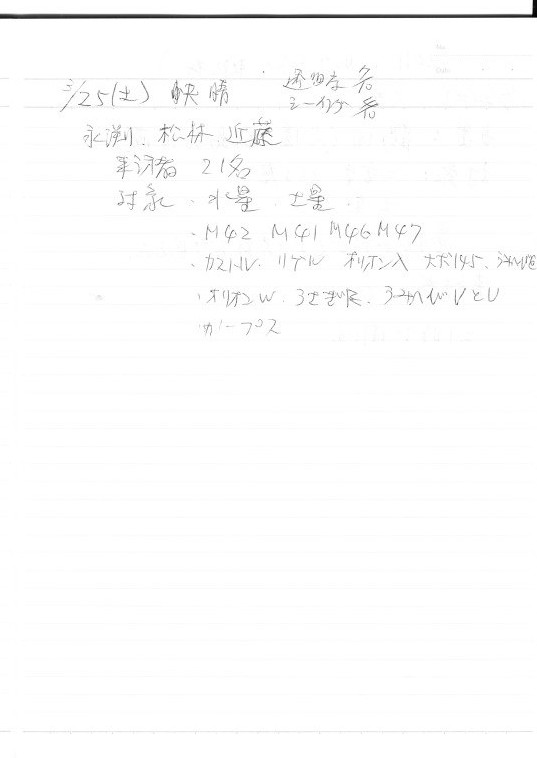 3/25(土) 快晴 透明度 名
シーイング 者
永渕、松林 近藤
来訪者 21名
対象・水星 土星、
・M42 M41 M46 M47
・カストル、リゲル オリオン入 大犬145、
・オリオンW、うさぎR、うみへびVとU
・カノープス